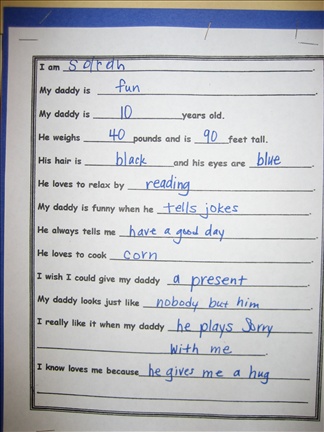 I am Sarah.
My daddy is fun.
My daddy is 10 years old.
He weighs 40 pounds and is 90 feet tall.
His hair is black and his eyes are blue.
He loves to relax by reading.
My daddy is funny when he tells jokes.
He always tells me have a good day.
He loves to cook corn.
I wish I could give my daddy a present.
My daddy looks just like nobody but him.
I really like it when my daddy he plays Sorry
with me.
I know loves me because he gives me a hug